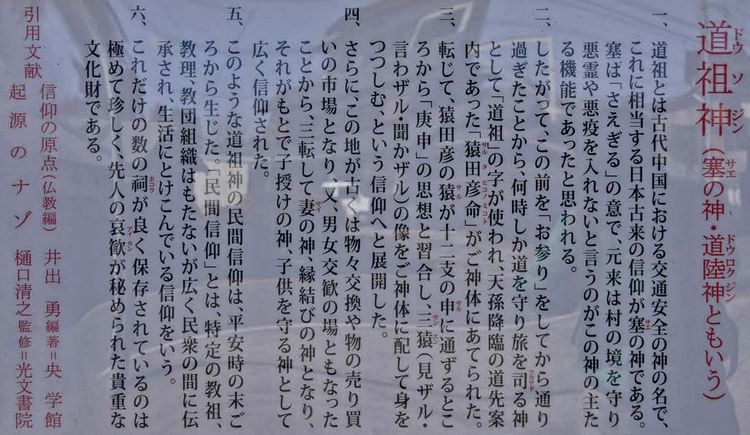 道祖神(塞の神・道陸神ともいう)
一、道祖とは古代中国における交通安全の神の名で、
これに相当する日本古来の信仰が塞の神である。
塞ば「さえぎる」の意で、元来は村の境を守り
悪霊や悪疫を入れないと言うのがこの神の主た
る機能であったと思われる。
二、したがって、この前を「お参り」をしてから通り
過ぎたことから、何時しか道を守り旅を司る神
として「道祖」の字が使われ、天孫降臨の道先案
内であった「猿田彦命」がご神体にあてられた。
三、転じて、猿田彦の猿が十二支の申に通ずるとこ
ろから「庚申」の思想と習合し、三猿(見ザル・
言わザル・聞かザル)の像をご神体に配して身を
つつしむ、という信仰へと展開した。
四、さらに、この地が古くは物々交換や物の売り買
いの市場となり、又、男女交歓の場ともなった
ことから、三転して妻の神、縁結びの神となり、
それがもとで子授けの神、子供を守る神として
広く信仰された。
五、このような道祖神の民間信仰は、平安時の末ご
ろから生じた。「民間信仰」とは、特定の教祖、
教理、教団組織はもたないが広く民衆の間に伝
承され、生活にとけこんでいる信仰をいう。
六、これだけの数の祠が良く保存されているのは
極めて珍しく、先人の哀歓が秘められた貴重な
文化財である。
引用文献 信仰の原点(仏教編) 井出勇編著=央学館
起源のナゾ 樋口清之監修=光文書院